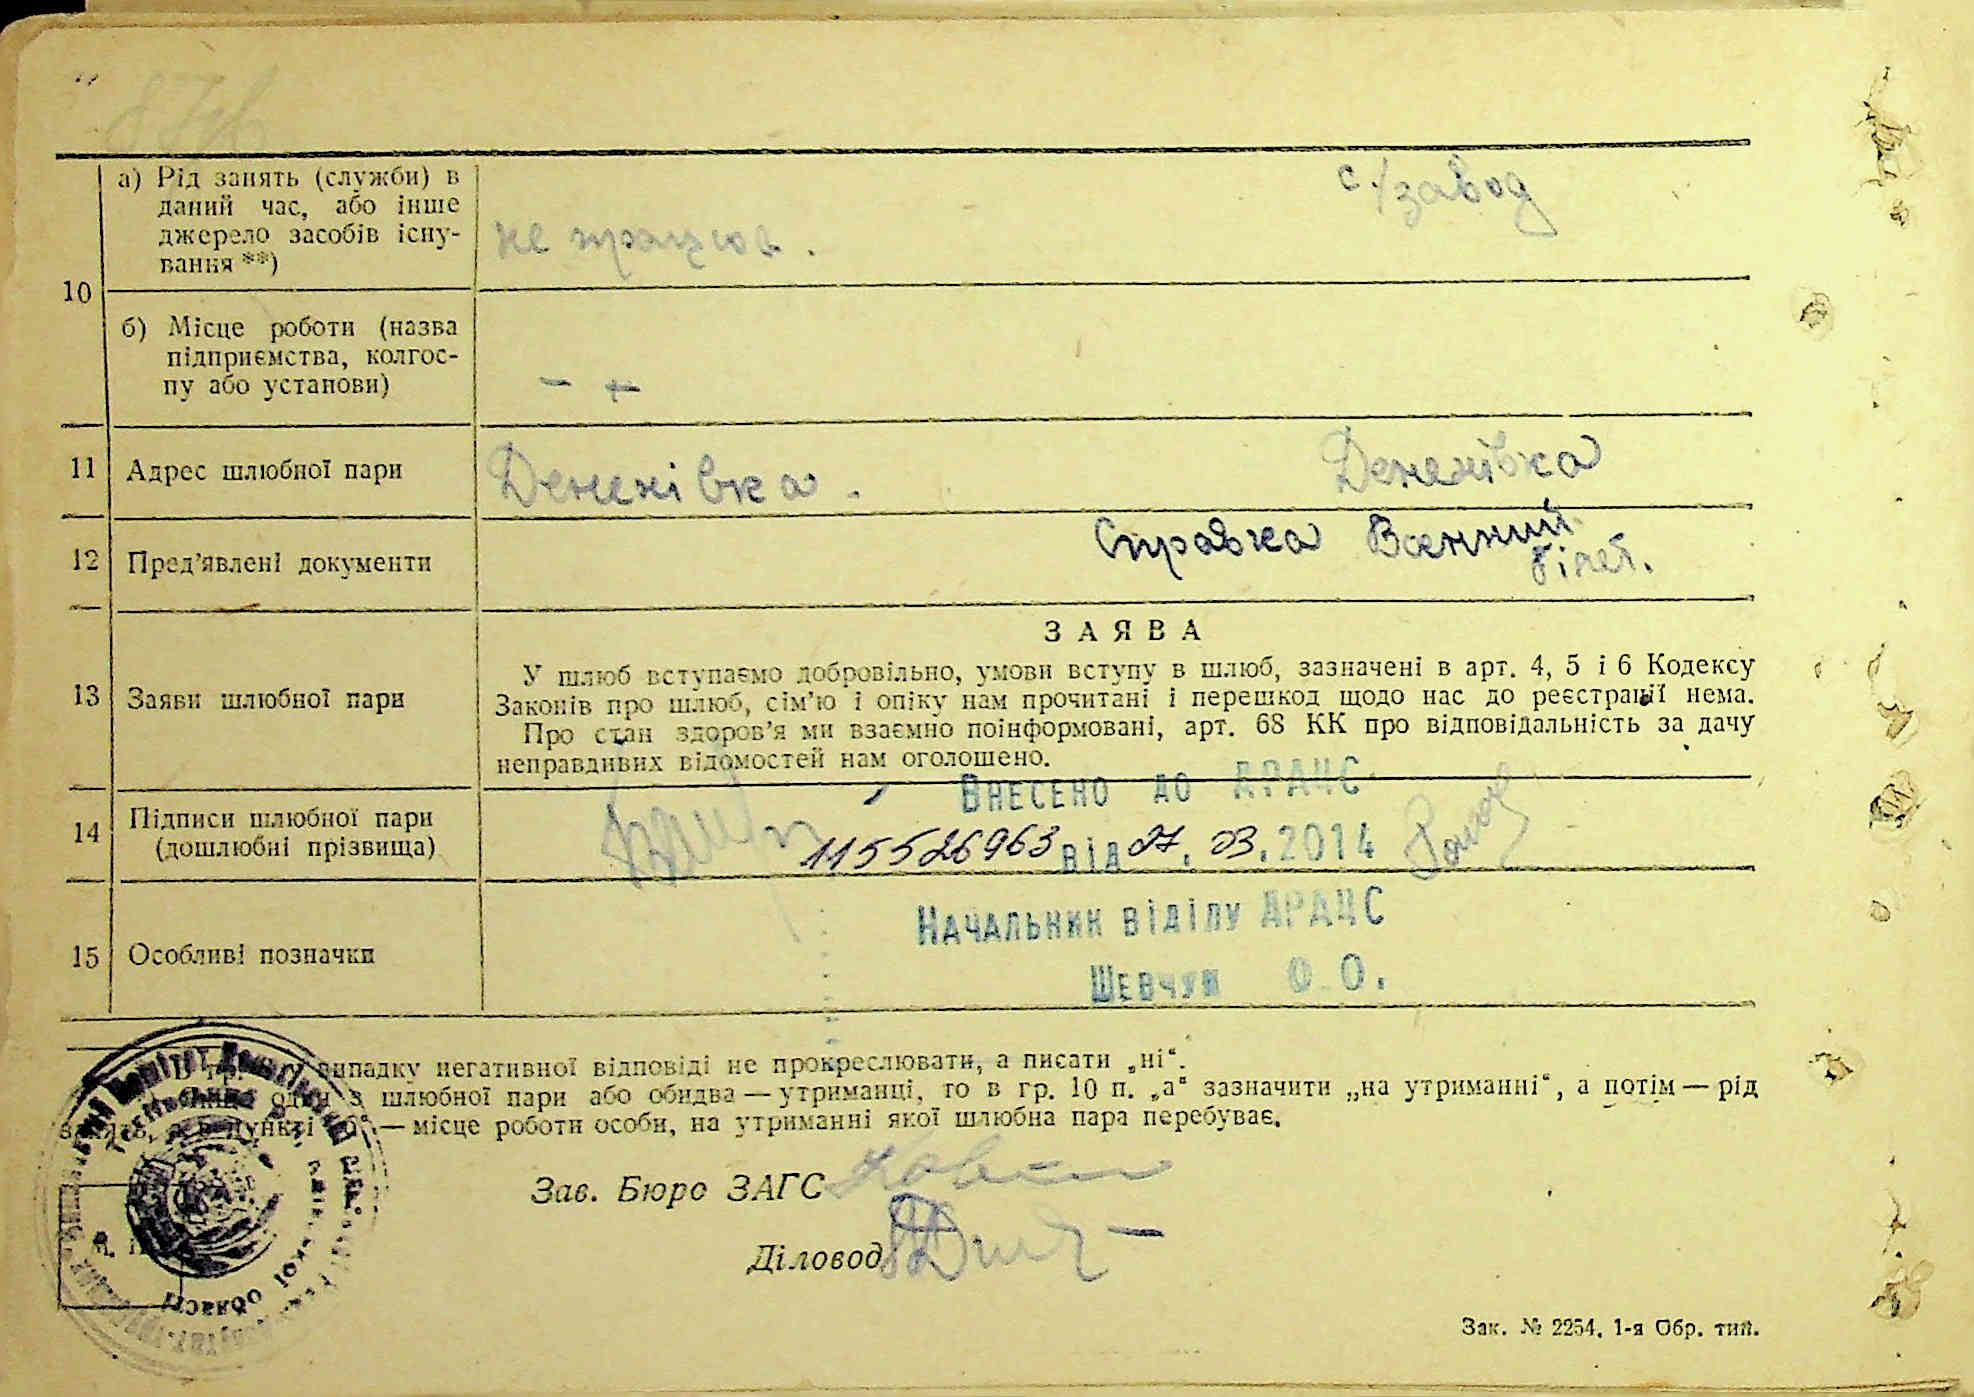 10
а) Рід занять (служби) в
даний час, або інше
джерело засобів існу-
вання **)
не працює.
с./завод
б) Місце роботи (назва
підприємства, колгос-
пу або установи)
11 Адрес шлюбної пари
Денехівка. Денехівка
12 Пред'явлені документи
Справка Воєнний
білет.
13 Заяви шлюбної пари
ЗАЯВА
У шлюб вступаємо добровільно, умови вступу в шлюб, зазначені в арт. 4, 5 і 6 Кодексу
Законів про шлюб, сім'ю і опіку нам прочитані і перешкод щодо нас до реєстрації нема.
Про стан здоров'я ми взаємно поінформовані, арт. 68 КК про відповідальність за дачу
неправдивих відомостей нам оголошено.
14 Підписи шлюбної пари
(дошлюбні прізвища)
Внесено до ДРАЦС
115526963 від 27.03.2014
15 Особливі позначки
Начальник відділу ДРАЦС
Шевчук О.О.
випадку негативної відповіді не прокреслювати, а писати „ні“.
один з шлюбної пари або обидва — утриманці, то в гр. 10 п. „а“ зазначити „на утриманні“, а потім — рід
пункті — місце роботи особи, на утриманні якої шлюбна пара перебуває.
Зав. Бюро ЗАГС
Діловод
М. П.
області
Зак. № 2254. 1-я Обр. тип.